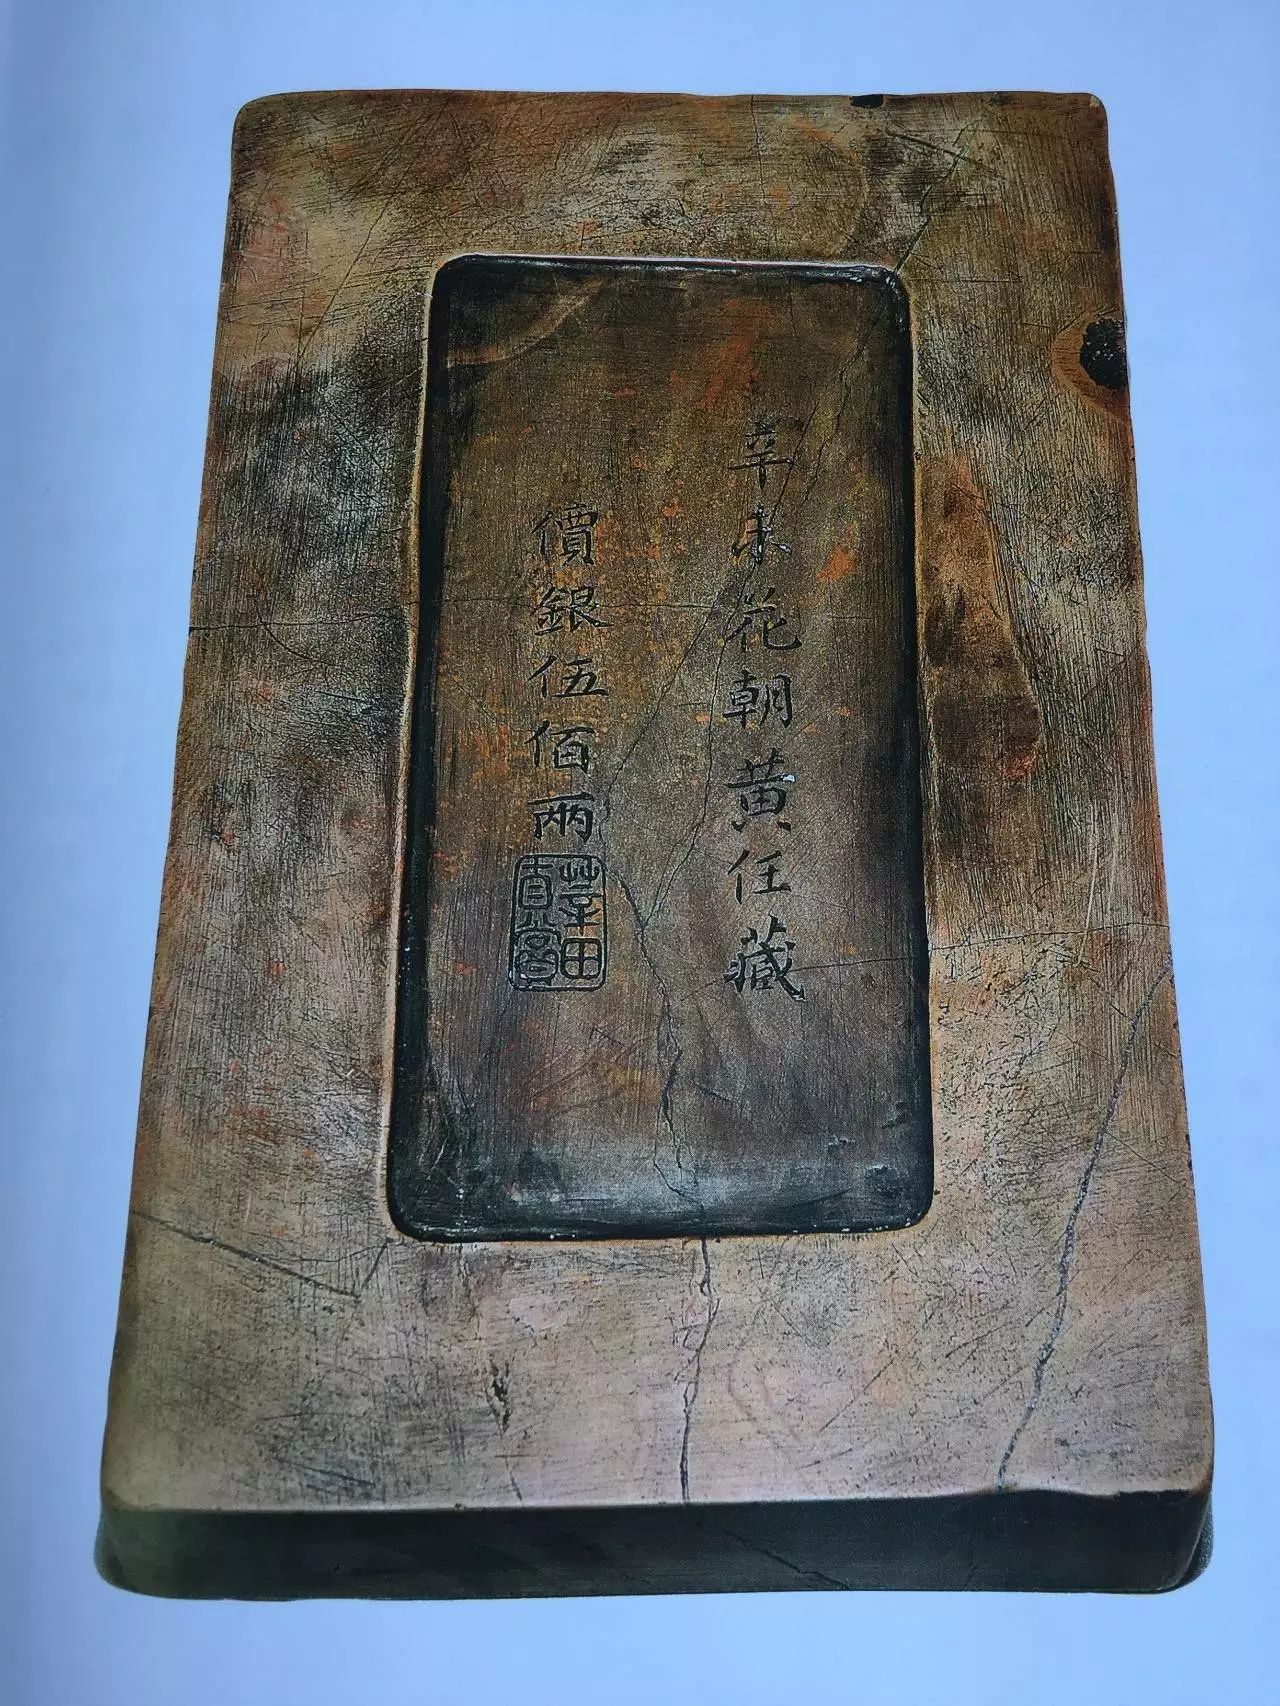 辛未花朝黄任藏
價銀伍佰兩
莘田真賞